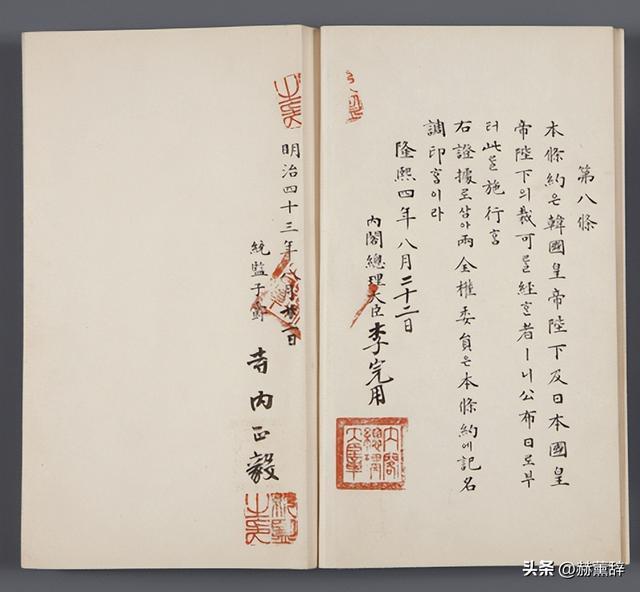 第八條
本條約은韓國皇帝陛下及日本國皇
帝陛下의裁可를經ᄒᆞᆫ者ㅣ니公布日로부
터此를施行홈
右證據로삼아兩全權委員은本條約에記名
調印홈이라
隆熙四年八月二十二日
內閣總理大臣李完用
內閣總理大臣章
明治四十三年八月廿二日
統監子爵 寺內正毅
头条 @赫薰辞